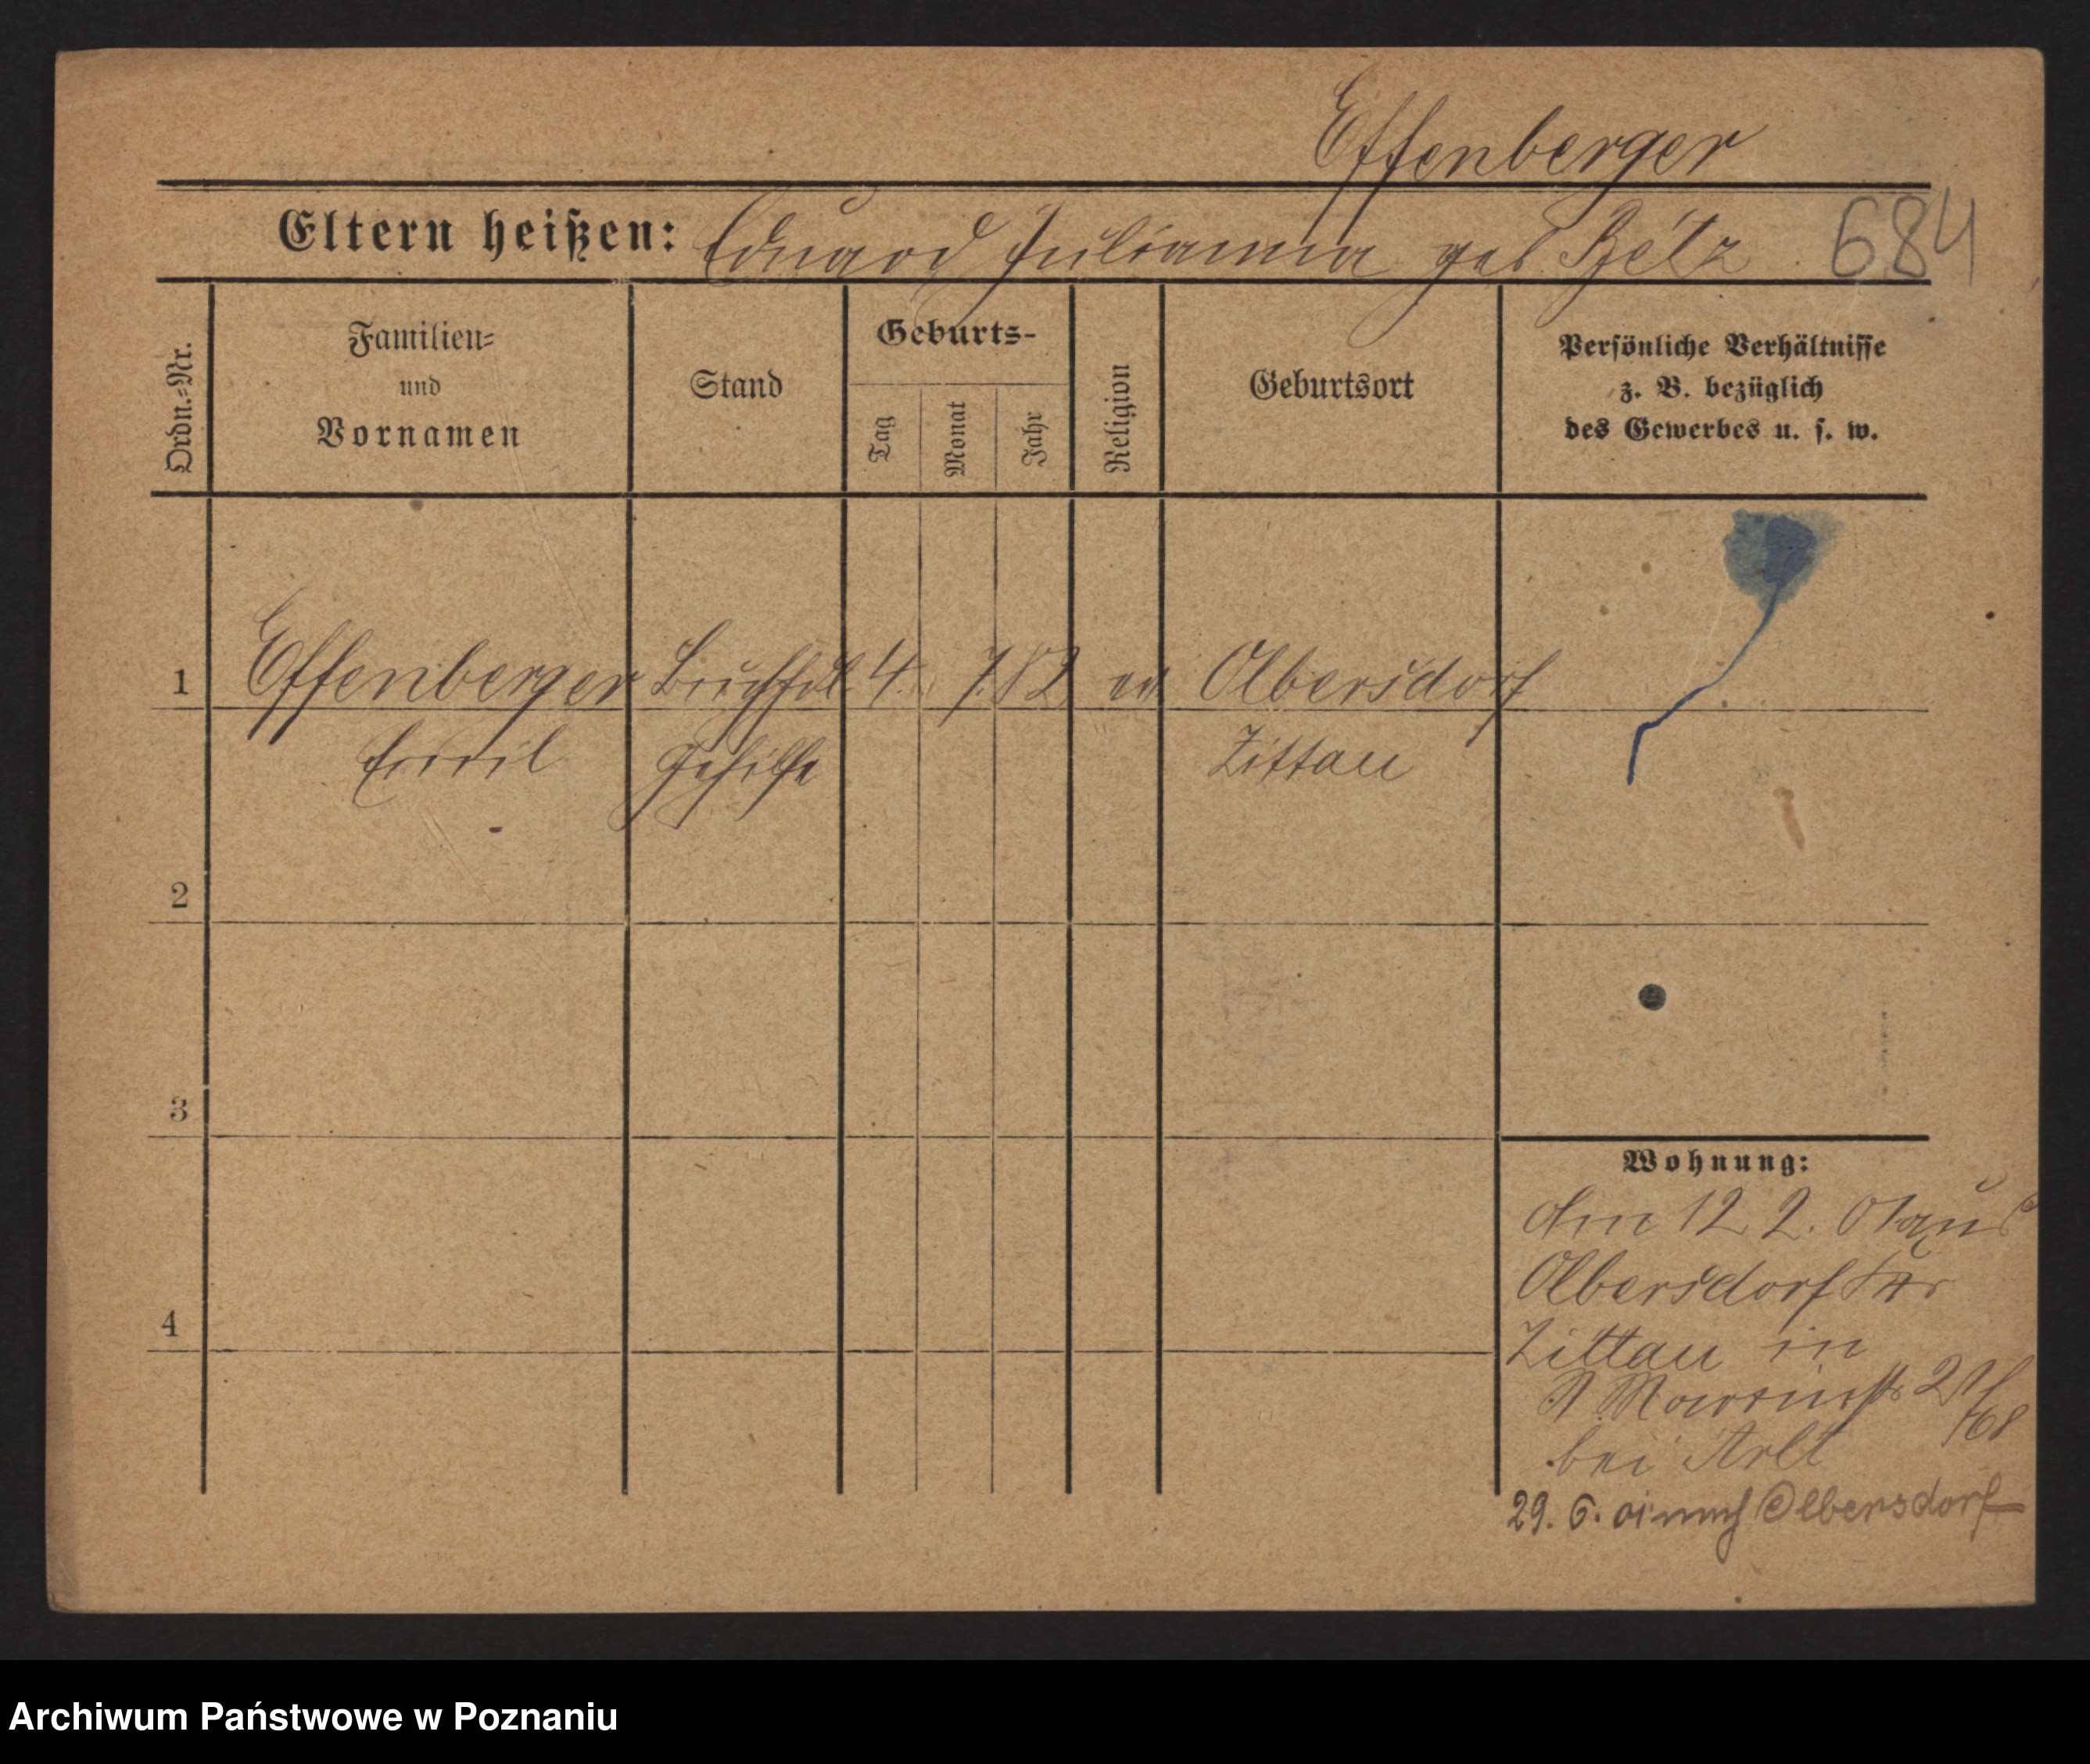 Effenberger
Eltern heißen: Eduard Julianna geb 684
Ordn.=Nr.
Familien=
und
Vornamen
Stand
Geburts-
Tag
Monat
Jahr
Religion
Geburtsort
Persönliche Verhältnisse
z. B. bezüglich
des Gewerbes u. s. w.
1 Effenberger Buchhdl. 4. 7. 82 ev Olbersdorf
Emil Gehilfe Zittau
2
3
4
Wohnung:
Am 12 2. 01 aus
Olbersdorf
Zittau in
bei Arlt
29. 6. 01 nach Olbersdorf
Archiwum Państwowe w Poznaniu